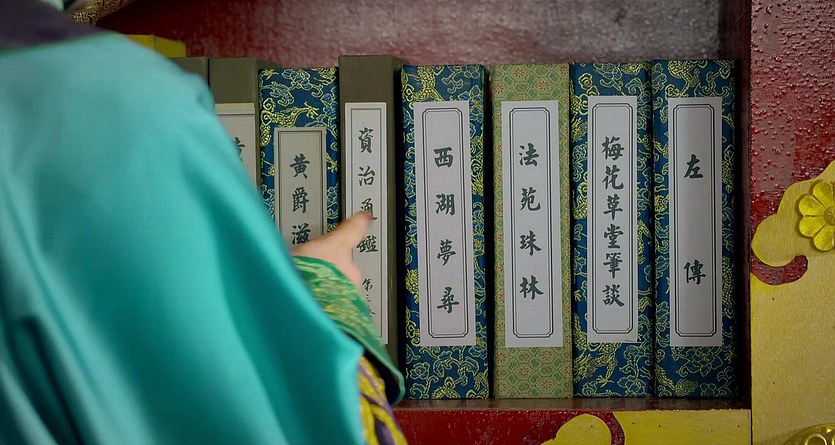 黃爵滋
資治通鑑
西湖夢尋
法苑珠林
梅花草堂筆談
左傳